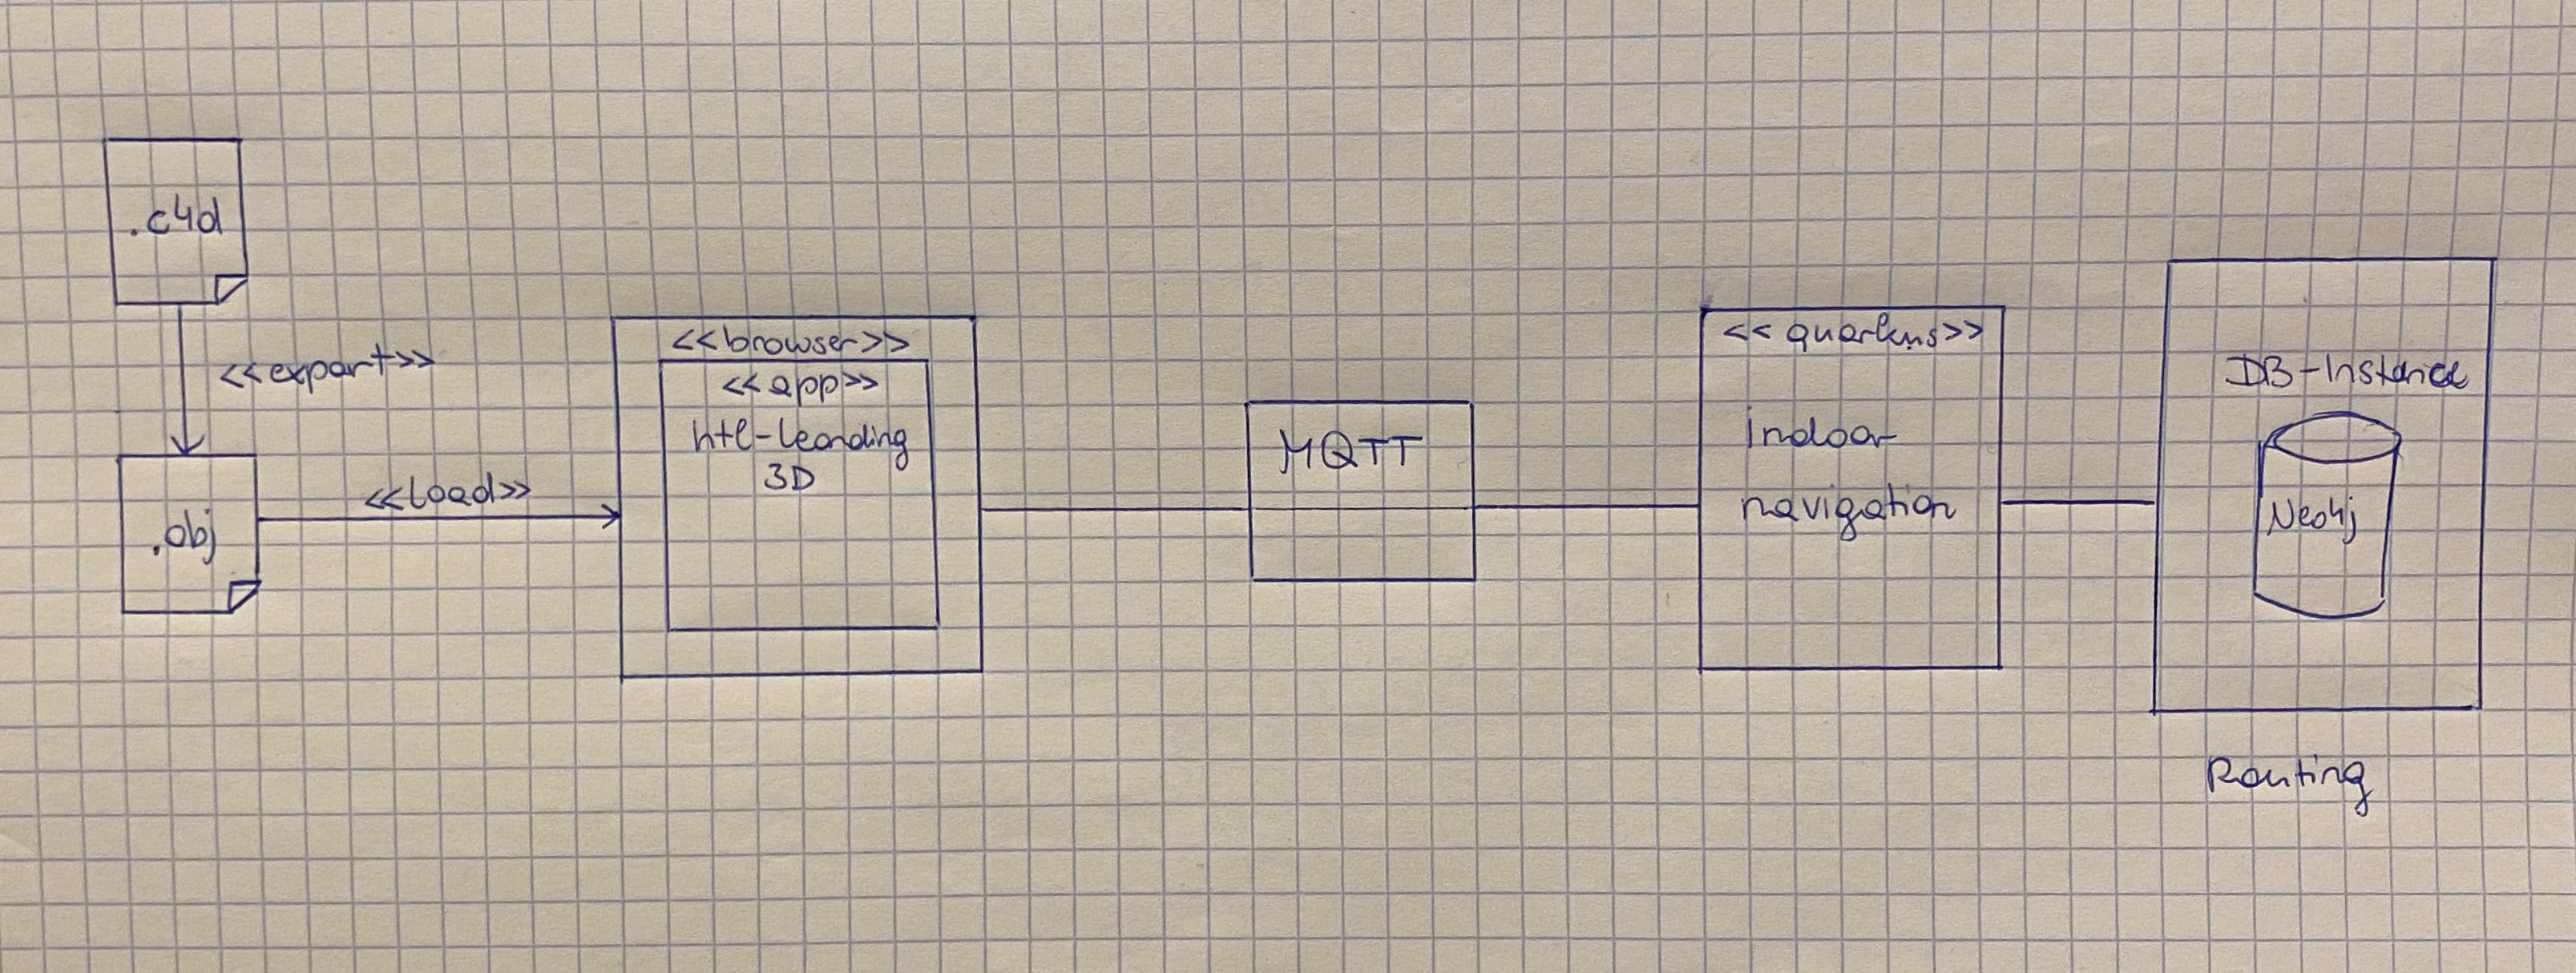 .c4d
<<export>>
.obj
<<load>>
<<browser>>
<<app>>
htl-leonding
3D
MQTT
<<quarkus>>
indoor
navigation
DB-Instance
Neo4j
Routing